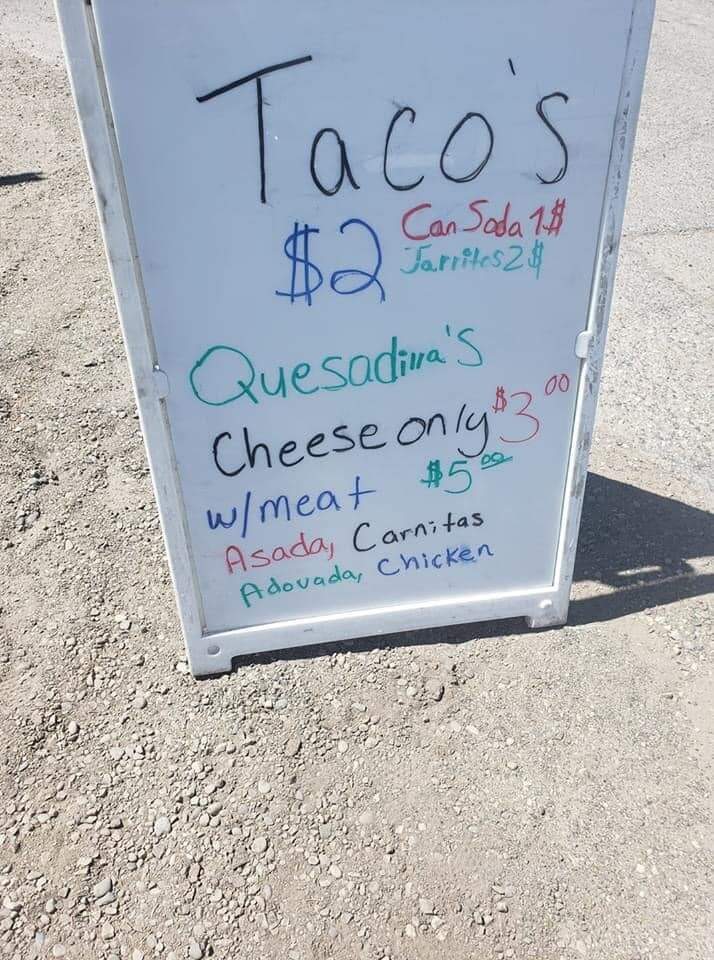 Taco's
$2 Can Soda 1$
Jarritos 2$
Quesadilla's
Cheese only $3.00
w/meat $5.00
Asada, Carnitas
Adovada, Chicken